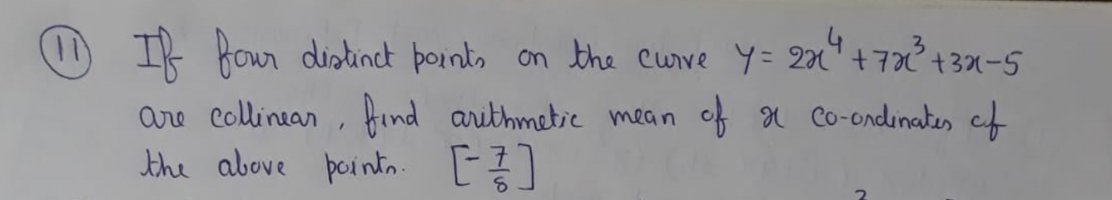 (11) If four distinct points on the curve y = 2x⁴ + 7x³ + 3x - 5
are collinear, find arithmetic mean of x co-ordinates of
the above points. [-7/8]